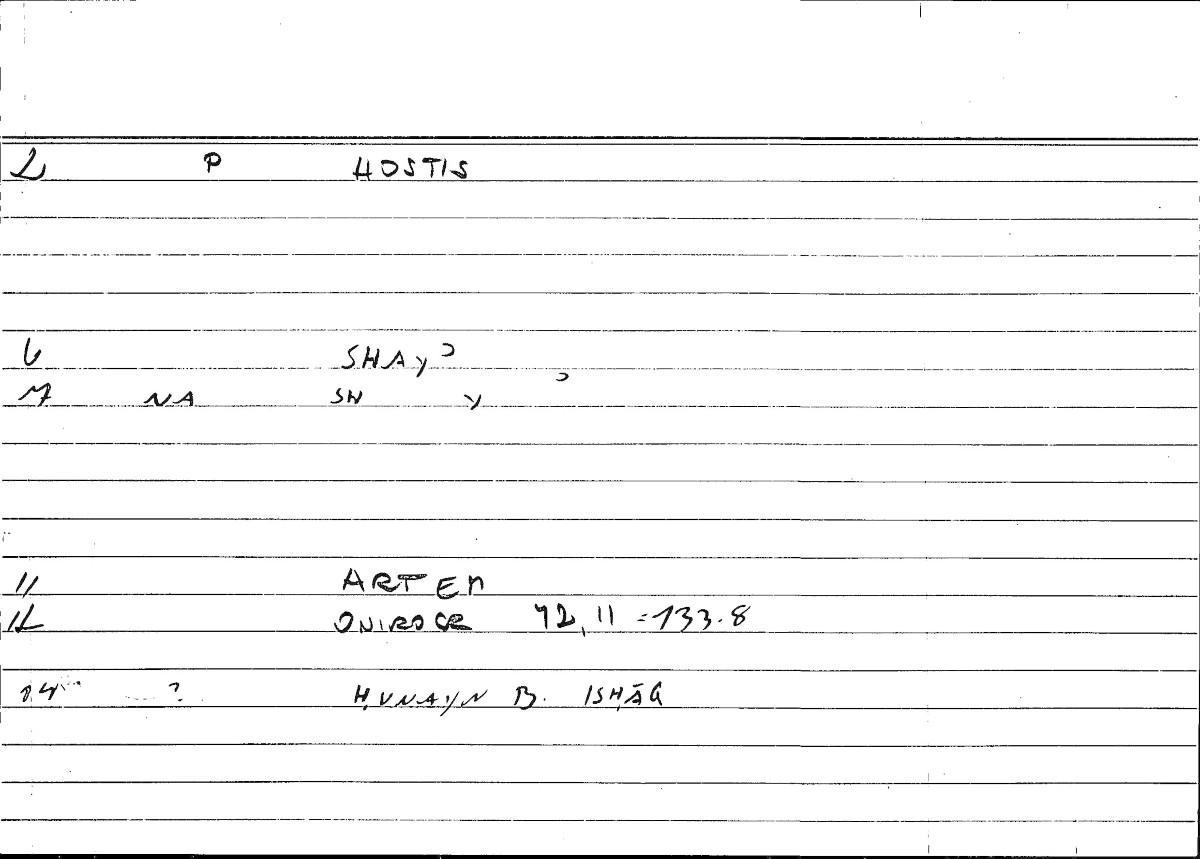 2 P HOSTIS
6 SHAYʾ
7 NA SH Yʾ
11 ARTEM
12 ONIROCR 42,11 = 133.8
14 ? ḤUNAYN B. ISḤĀQ